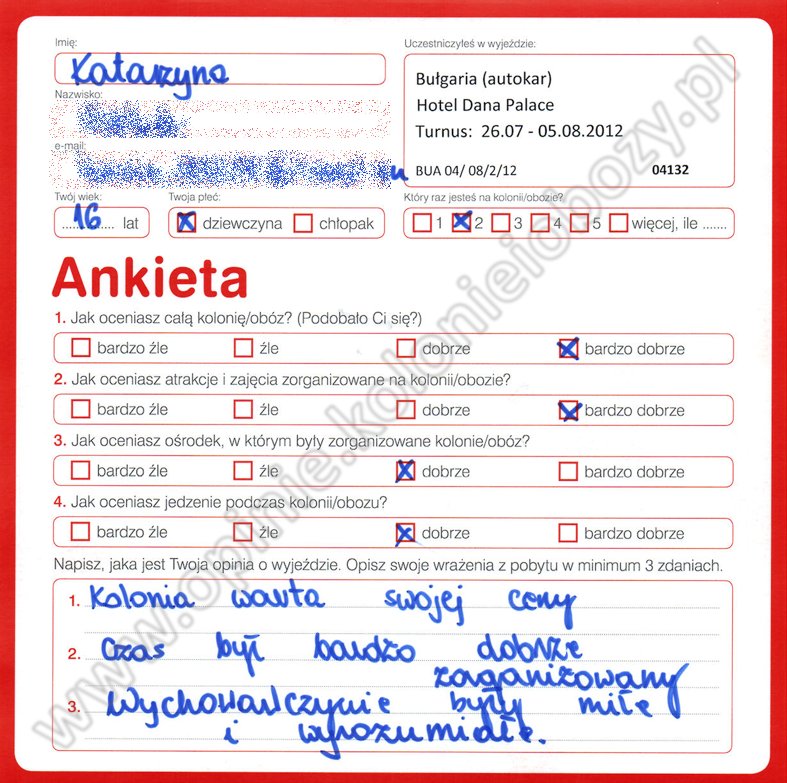 Imię:
Katarzyna
Uczestniczyłeś w wyjeździe:
Bułgaria (autokar)
Hotel Dana Palace
Turnus: 26.07 - 05.08.2012
BUA 04/ 08/2/12 04132
Nazwisko:
e-mail:
Twój wiek:
16 lat
Twoja płeć:
dziewczyna chłopak
Który raz jesteś na kolonii/obozie?
1 2 3 4 5 więcej, ile .......
Ankieta
1. Jak oceniasz całą kolonię/obóz? (Podobało Ci się?)
bardzo źle źle dobrze bardzo dobrze
2. Jak oceniasz atrakcje i zajęcia zorganizowane na kolonii/obozie?
bardzo źle źle dobrze bardzo dobrze
3. Jak oceniasz ośrodek, w którym były zorganizowane kolonie/obóz?
bardzo źle źle dobrze bardzo dobrze
4. Jak oceniasz jedzenie podczas kolonii/obozu?
bardzo źle źle dobrze bardzo dobrze
Napisz, jaka jest Twoja opinia o wyjeździe. Opisz swoje wrażenia z pobytu w minimum 3 zdaniach.
1. Kolonia warta swojej ceny
2. Czas był bardzo dobrze
zorganizowany
3. Wychowawczynie były miłe
i wyrozumiałe.
www.opinie.kolonieiobozy.pl